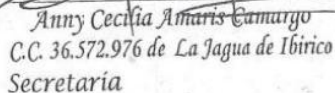 Anny Cecilia Amaris Camargo
C.C. 36.572.976 de La Jagua de Ibirico
Secretaria